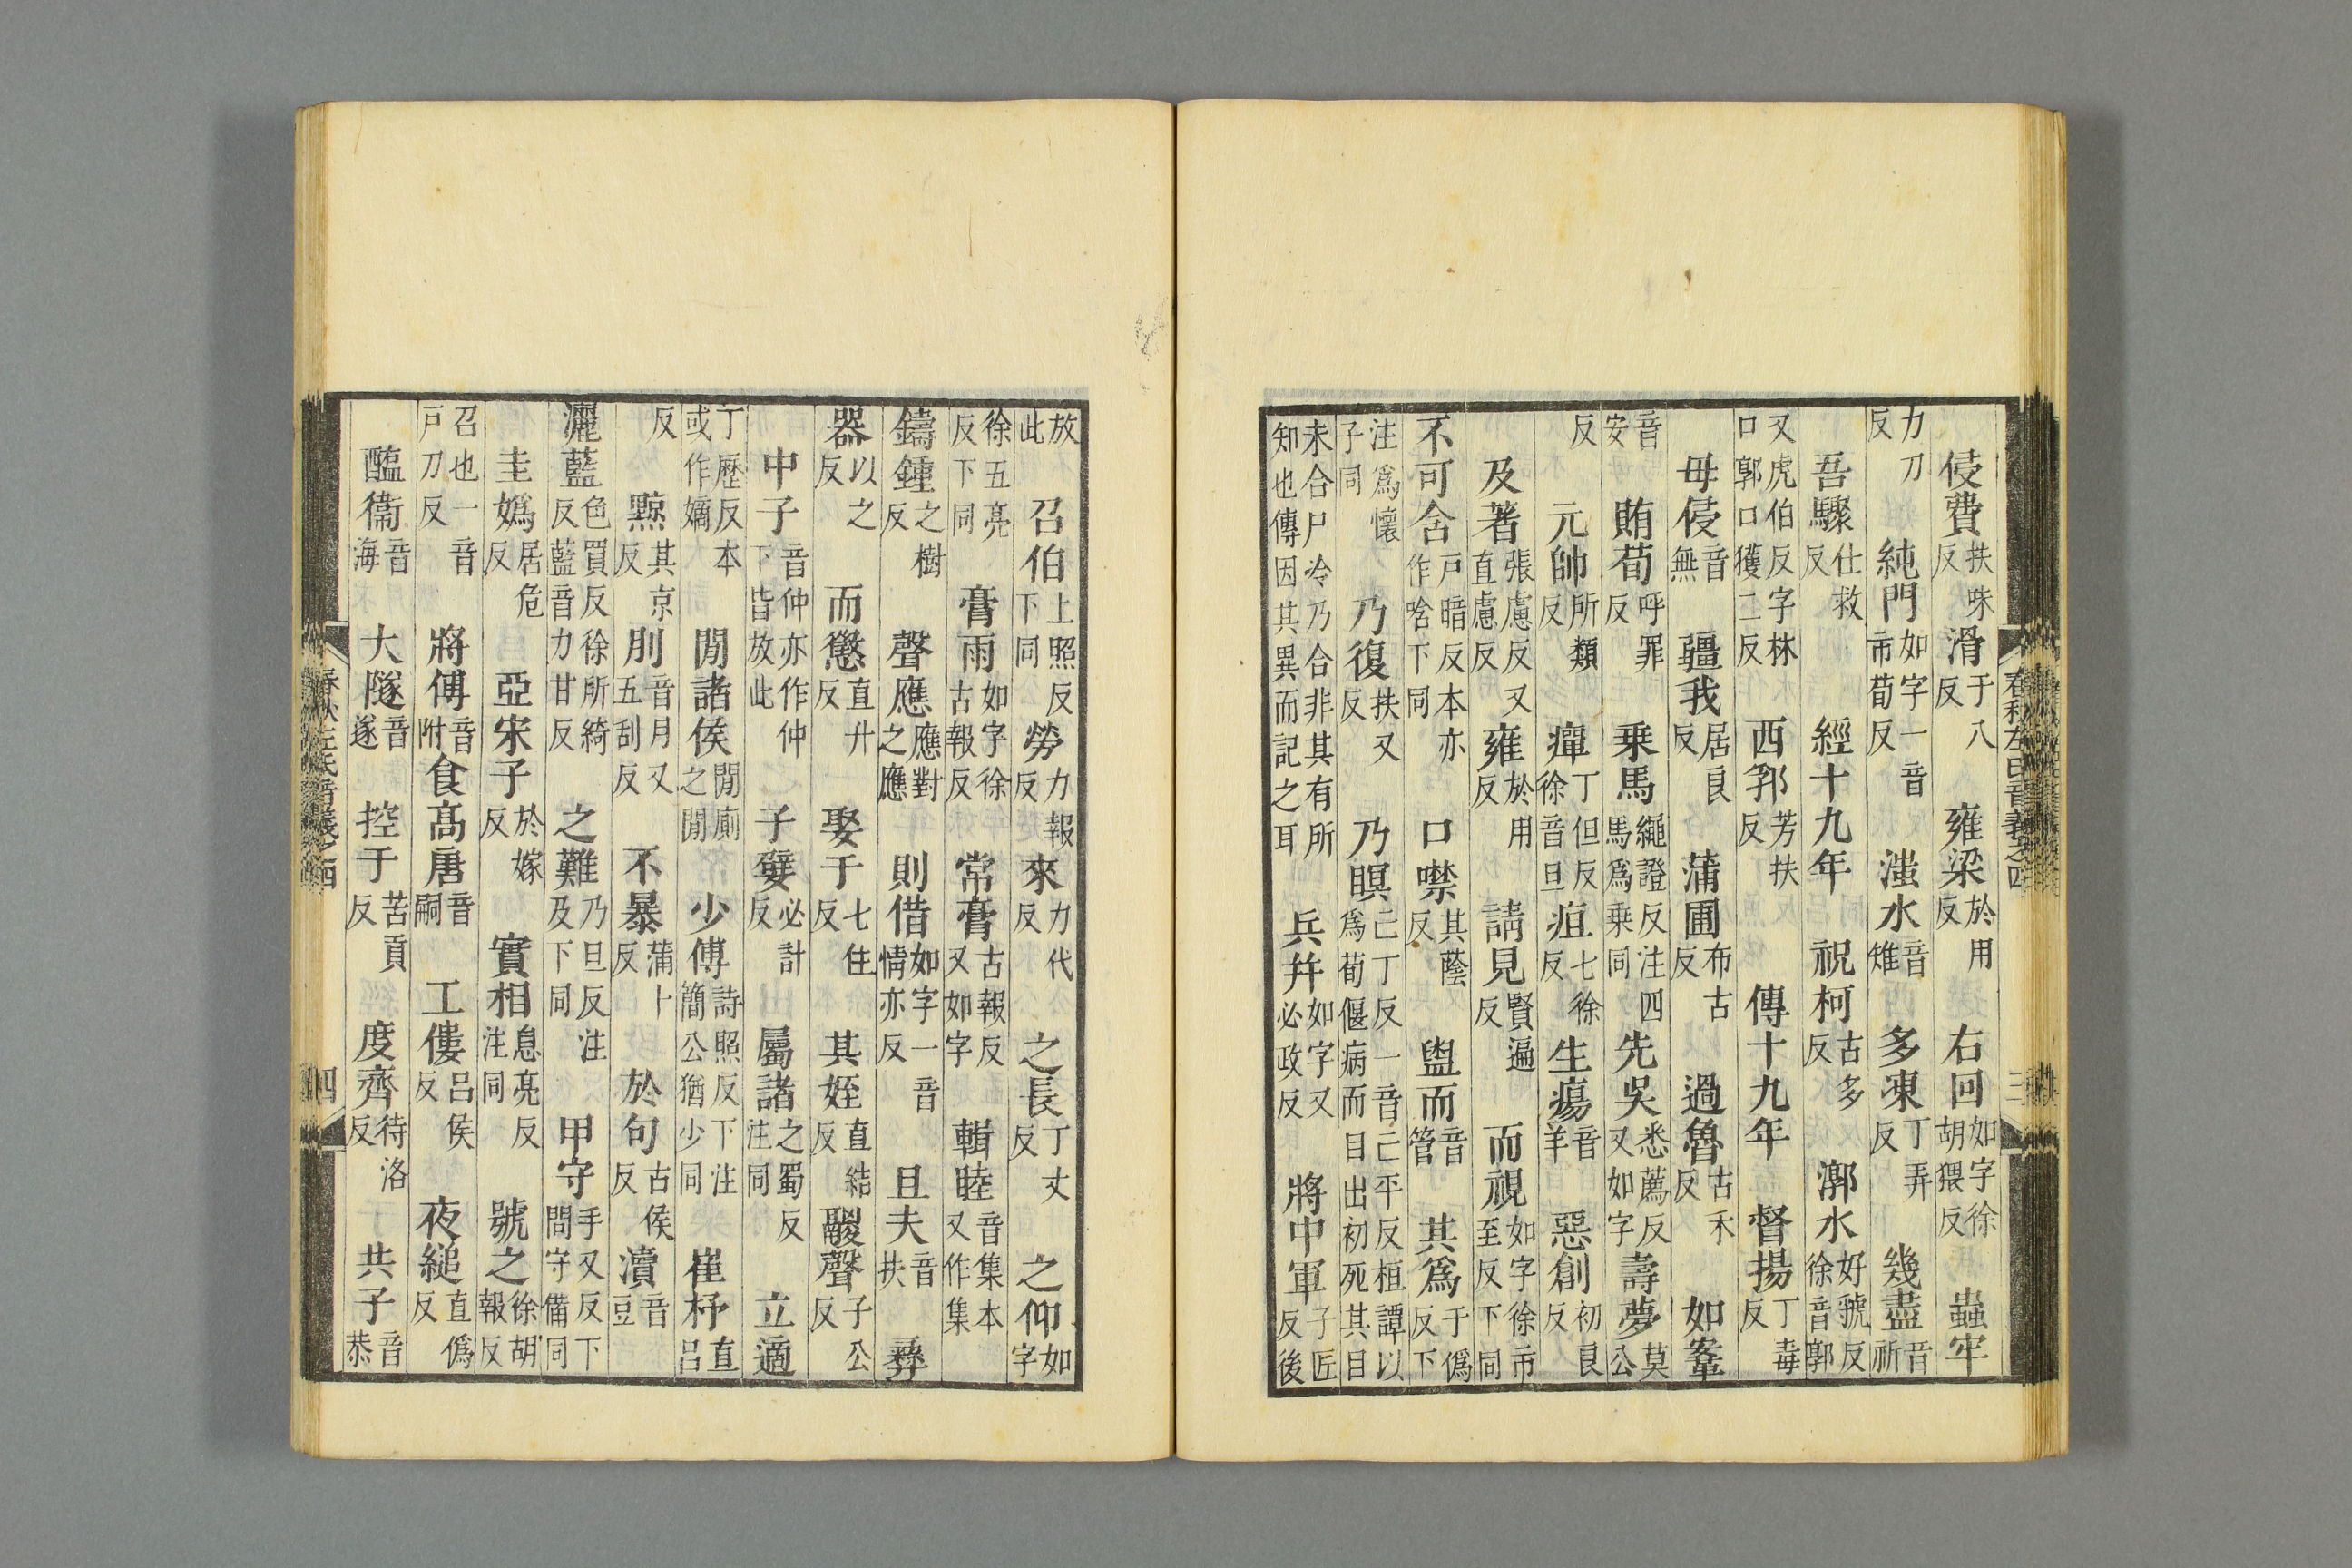 侵費扶味反滑于八反雍梁於用反右回如字徐胡猥反蟲牢
力刀反純門如字一音市荀反滍水音雉多凍丁弄反幾盡音祈
吾驟仕救反經十九年祝柯古多反漷水好虢反徐音郭
又虎伯反字林口郭口獲二反西郛芳扶反傳十九年督揚丁毒反
毋侵音無疆我居良反蒲圃布古反過魯古禾反如鞌
音安賄荀呼罪反乗馬繩證反注四馬爲乗同先吳悉薦反又如字壽夢莫公
反元帥所類反癉丁但反徐音旦疽七徐反生瘍音羊惡創初良反
及著張慮反又直慮反雍於用反請見賢遍反而視如字徐市至反下同
不可含戶暗反本亦作唅下同口噤其蔭反盥而音管其爲于僞反下
注爲懷子同乃復扶又反乃瞑亡丁反一音亡平反桓譚以爲荀偃病而目出初死其目
未合尸冷乃合非其有所知也傳因其異而記之耳兵幷如字又必政反將中軍子匠反後
放此召伯上照反下同勞力報反來力代反之長丁丈反之仰如字
徐五亮反下同膏雨如字徐古報反常膏古報反又如字輯睦音集本又作集
鑄鍾之樹反聲應應對之應則借如字一音情亦反且夫音扶彝
器以之反而懲直升反娶于七住反其姪直結反鬷聲子公反
中子音仲亦作仲下皆放此子嬖必計反屬諸之蜀反注同立適
丁歷反本或作嫡閒諸侯閒廁之閒少傅詩照反下注簡公猶少同崔杼直呂
反黥其京反刖音月又五刮反不暴蒲卜反於句古侯反瀆音豆
灑藍色買反徐所綺反藍音力甘反之難乃旦反注及下同甲守手又反下問守備同
圭嬀居危反亞宋子於嫁反實相息亮反注同號之徐胡報反
召也一音戶刀反將傅音附食高唐音嗣工僂呂侯反夜縋直僞反
醢衞音海大隧音遂控于苦貢反度齊待洛反共子音恭
春秋左氏音義之四
四